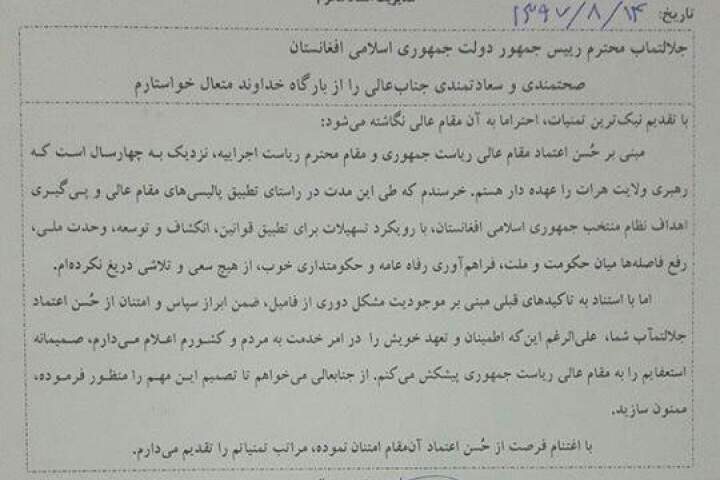 تاریخ: ۱۳۹۷/۸/۱۴
جلالتمآب محترم رییس جمهور دولت جمهوری اسلامی افغانستان
صحتمندی و سعادتمندی جناب‌عالی را از بارگاه خداوند متعال خواستارم
با تقدیم نیک‌ترین تمنیات، احتراما به آن مقام عالی نگاشته می‌شود:
مبنی بر حُسن اعتماد مقام عالی ریاست جمهوری و مقام محترم ریاست اجراییه، نزدیک به چهارسال است که
رهبری ولایت هرات را عهده دار هستم. خرسندم که طی این مدت در راستای تطبیق پالیسی‌های مقام عالی و پی‌گیری
اهداف نظام منتخب جمهوری اسلامی افغانستان، با رویکرد تسهیلات برای تطبیق قوانین، انکشاف و توسعه، وحدت ملی،
رفع فاصله‌ها میان حکومت و ملت، فراهم‌آوری رفاه عامه و حکومتداری خوب، از هیچ سعی و تلاشی دریغ نکرده‌ام.
اما با استناد به تاکیدهای قبلی مبنی بر موجودیت مشکل دوری از فامیل، ضمن ابراز سپاس و امتنان از حُسن اعتماد
جلالتمآب شما، علی‌الرغم این‌که اطمینان و تعهد خویش را در امر خدمت به مردم و کشورم اعلام می‌دارم، صمیمانه
استعفایم را به مقام عالی ریاست جمهوری پیشکش می‌کنم. از جنابعالی می‌خواهم تا تصمیم این مهم را منظور فرموده،
ممنون سازید.
با اغتنام فرصت از حُسن اعتماد آن‌مقام امتنان نموده، مراتب تمنیاتم را تقدیم می‌دارم.